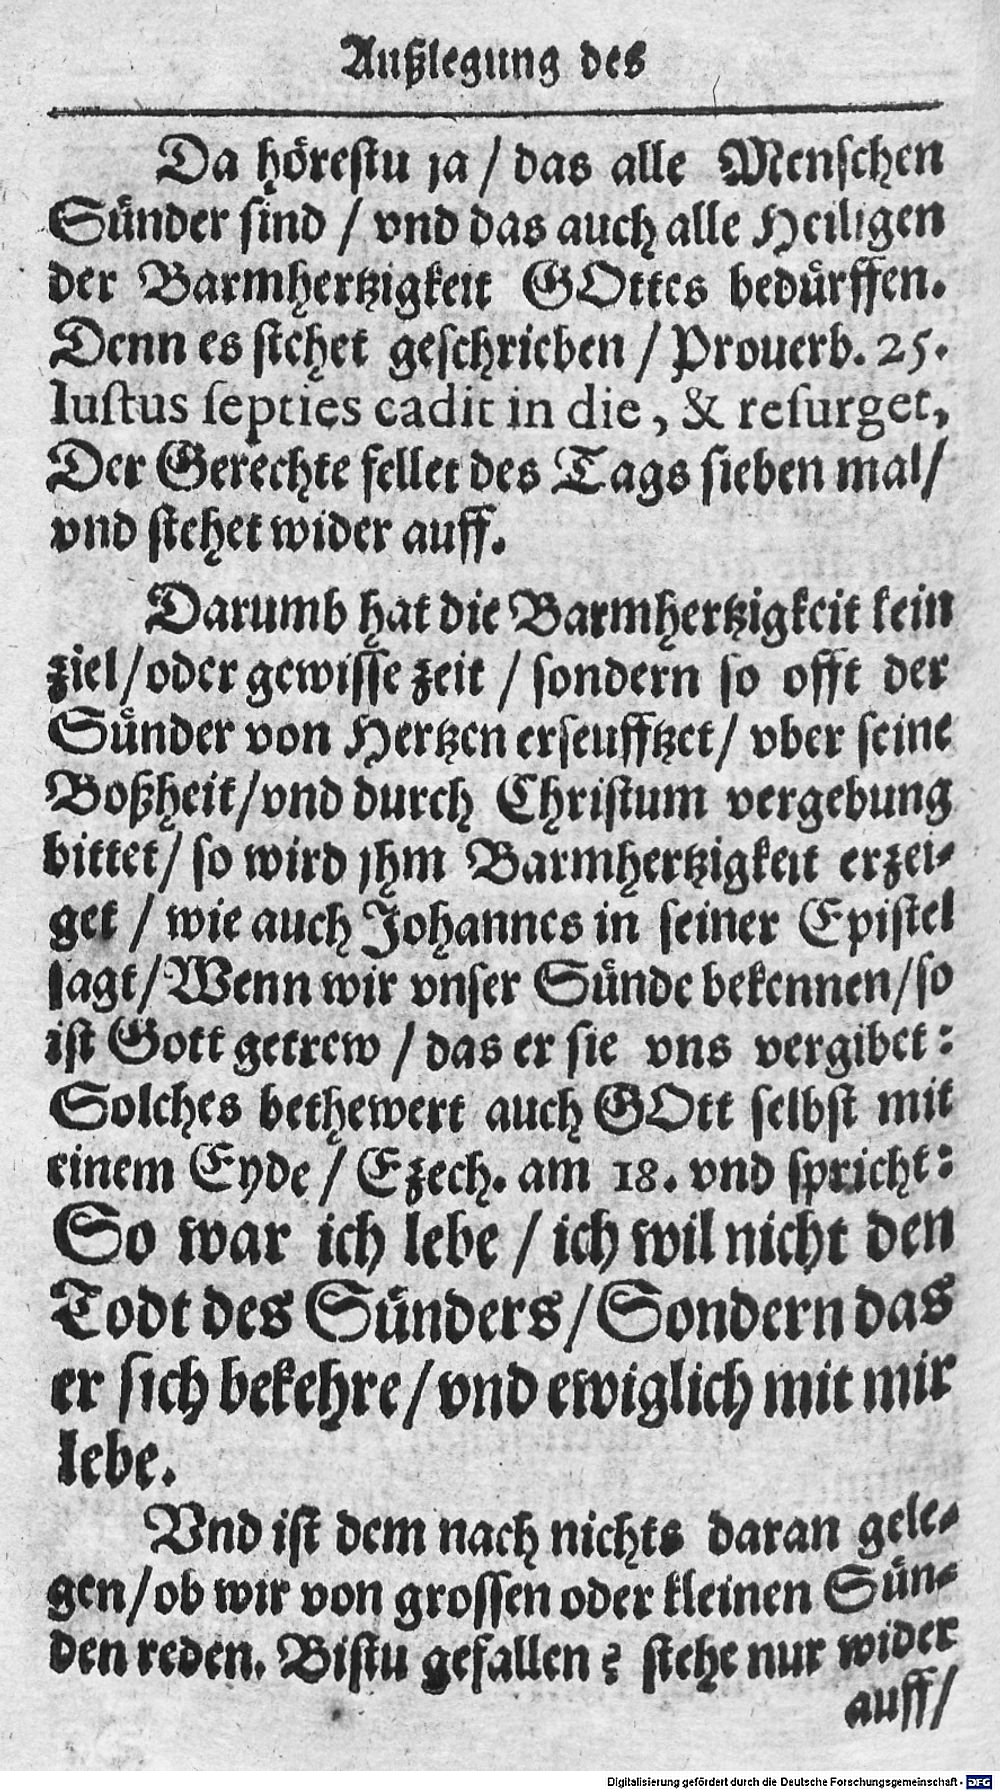 Außlegung des
Da hörestu ja / das alle Menschen
Sünder sind / vnd das auch alle Heiligen
der Barmhertzigkeit GOttes bedürffen.
Denn es stehet geschrieben / Prouerb. 25.
Iustus septies cadit in die, & resurget,
Der Gerechte fellet des Tags sieben mal/
vnd stehet wider auff.
Darumb hat die Barmhertzigkeit kein
ziel/oder gewisse zeit / sondern so offt der
Sünder von Hertzen erseufftzet/ vber seine
Boßheit/vnd durch Christum vergebung
bittet/ so wird jhm Barmhertzigkeit erzei-
get / wie auch Johannes in seiner Epistel
sagt/Wenn wir vnser Sünde bekennen/so
ist Gott getrew / das er sie vns vergibet:
Solches bethewert auch GOtt selbst mit
einem Eyde/ Ezech. am 18. vnd spricht:
So war ich lebe / ich wil nicht den
Todt des Sünders/Sondern das
er sich bekehre/vnd ewiglich mit mir
lebe.
Vnd ist dem nach nichts daran gele-
gen/ob wir von grossen oder kleinen Sün-
den reden. Bistu gefallen? stehe nur wider
auff/
Digitalisierung gefördert durch die Deutsche Forschungsgemeinschaft - DFG